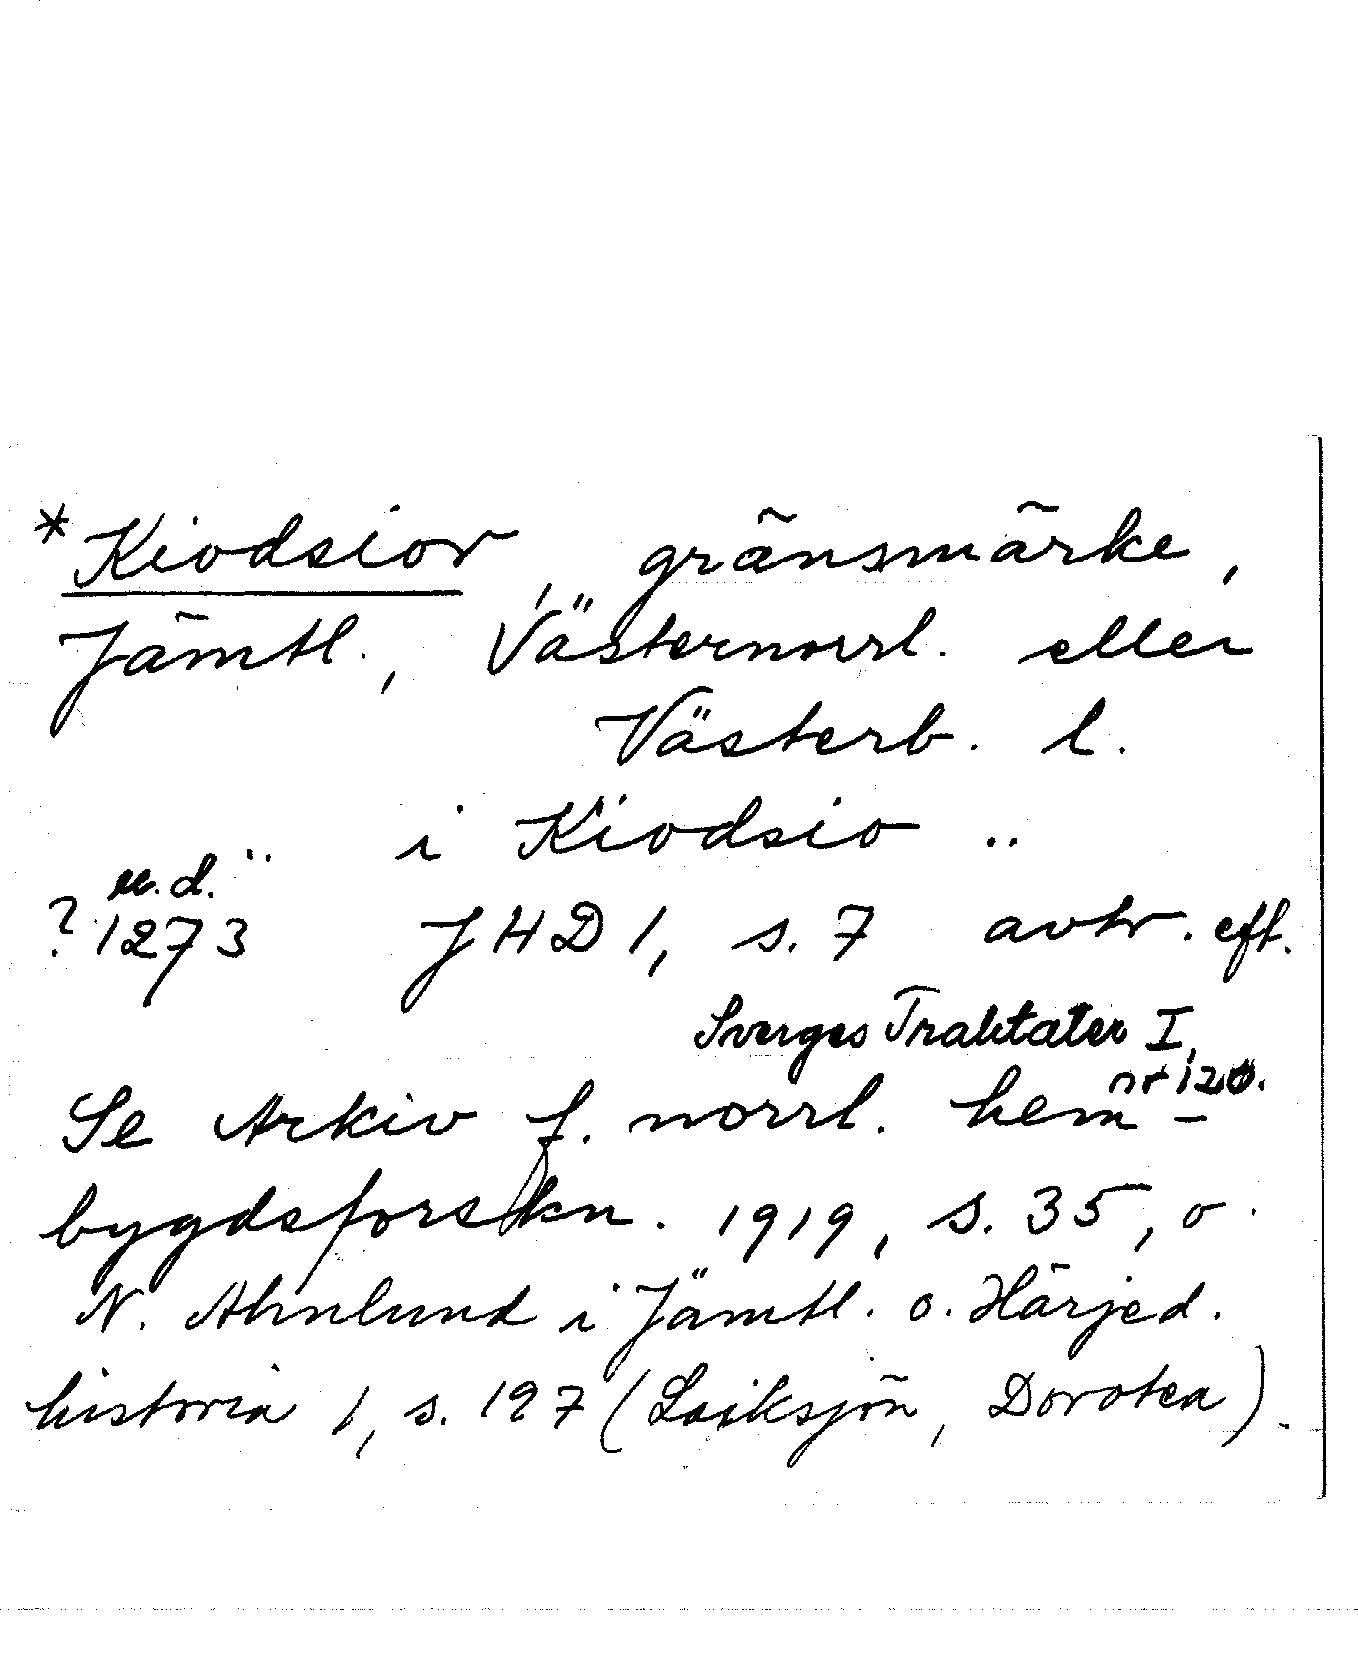 *Kiodsior, gränsmärke,
Jämtl., Västernorrl. eller
Västerb. l.
.. i Kiodsio ..
u.d.
? 1273 JHD 1, s. 7 avtr. eft.
Sverges Traktater I,
nr 120.
Se Arkiv f. norrl. hem-
bygdsforskn. 1919, s. 35, o.
N. Ahnlund i Jämtl. o. Härjed.
historia 1, s. 197 (Laiksjön, Dorotea).